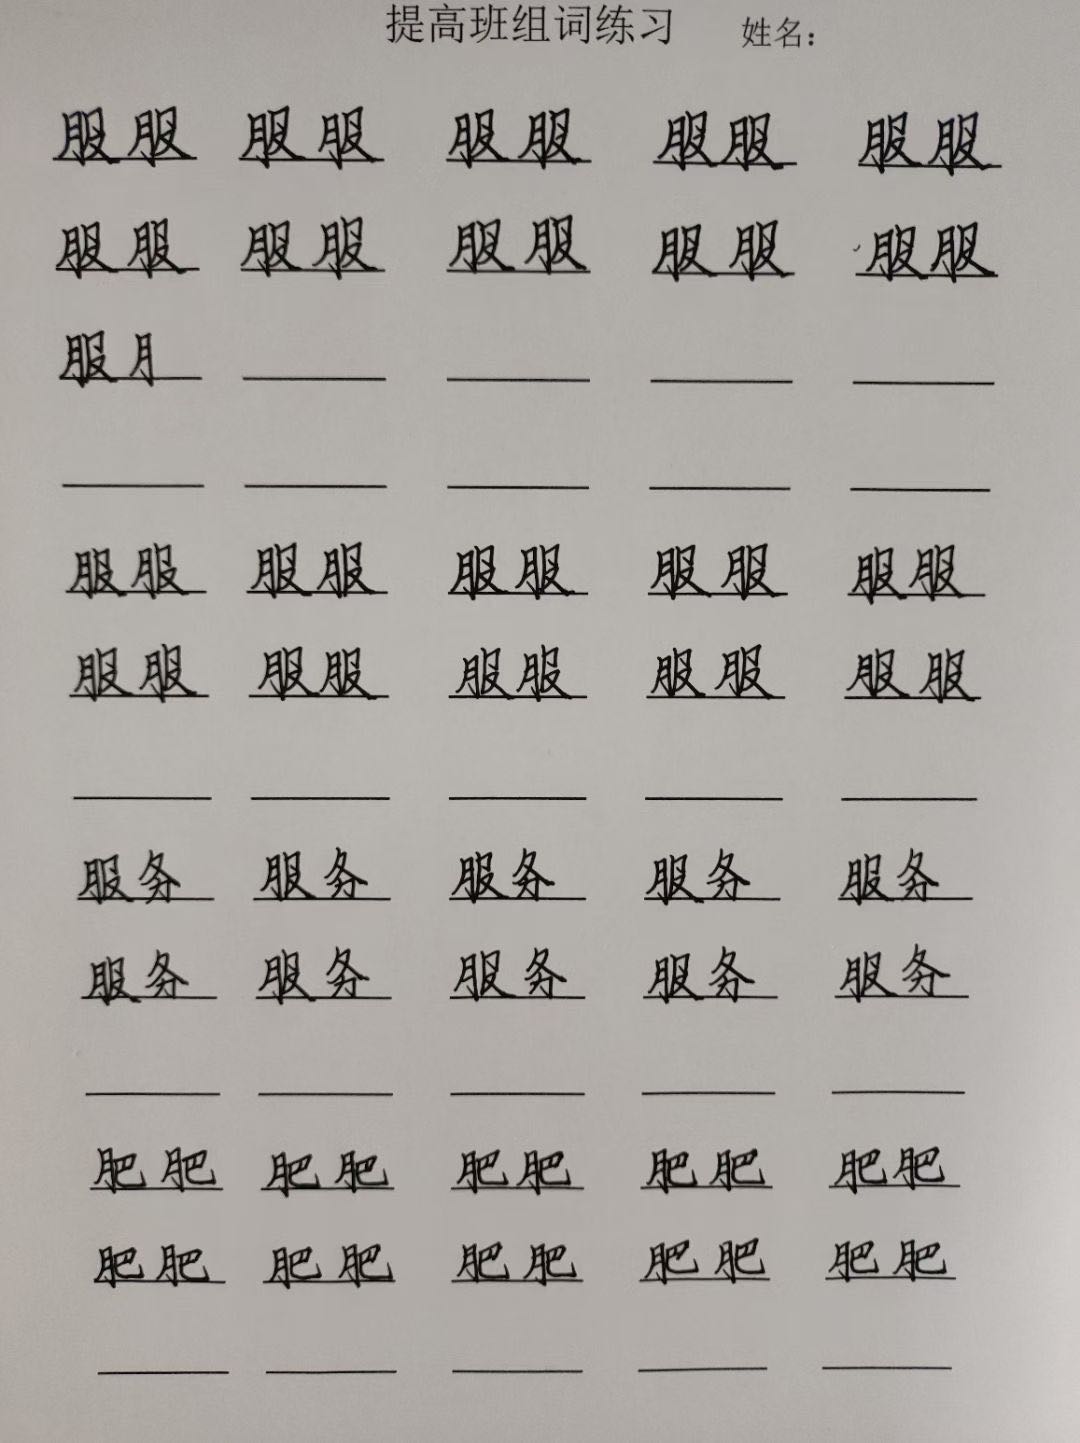 提高班组词练习 姓名：
服服 服服 服服 服服 服服
服服 服服 服服 服服 服服
服月
服服 服服 服服 服服 服服
服服 服服 服服 服服 服服
服务 服务 服务 服务 服务
服务 服务 服务 服务 服务
肥肥 肥肥 肥肥 肥肥 肥肥
肥肥 肥肥 肥肥 肥肥 肥肥